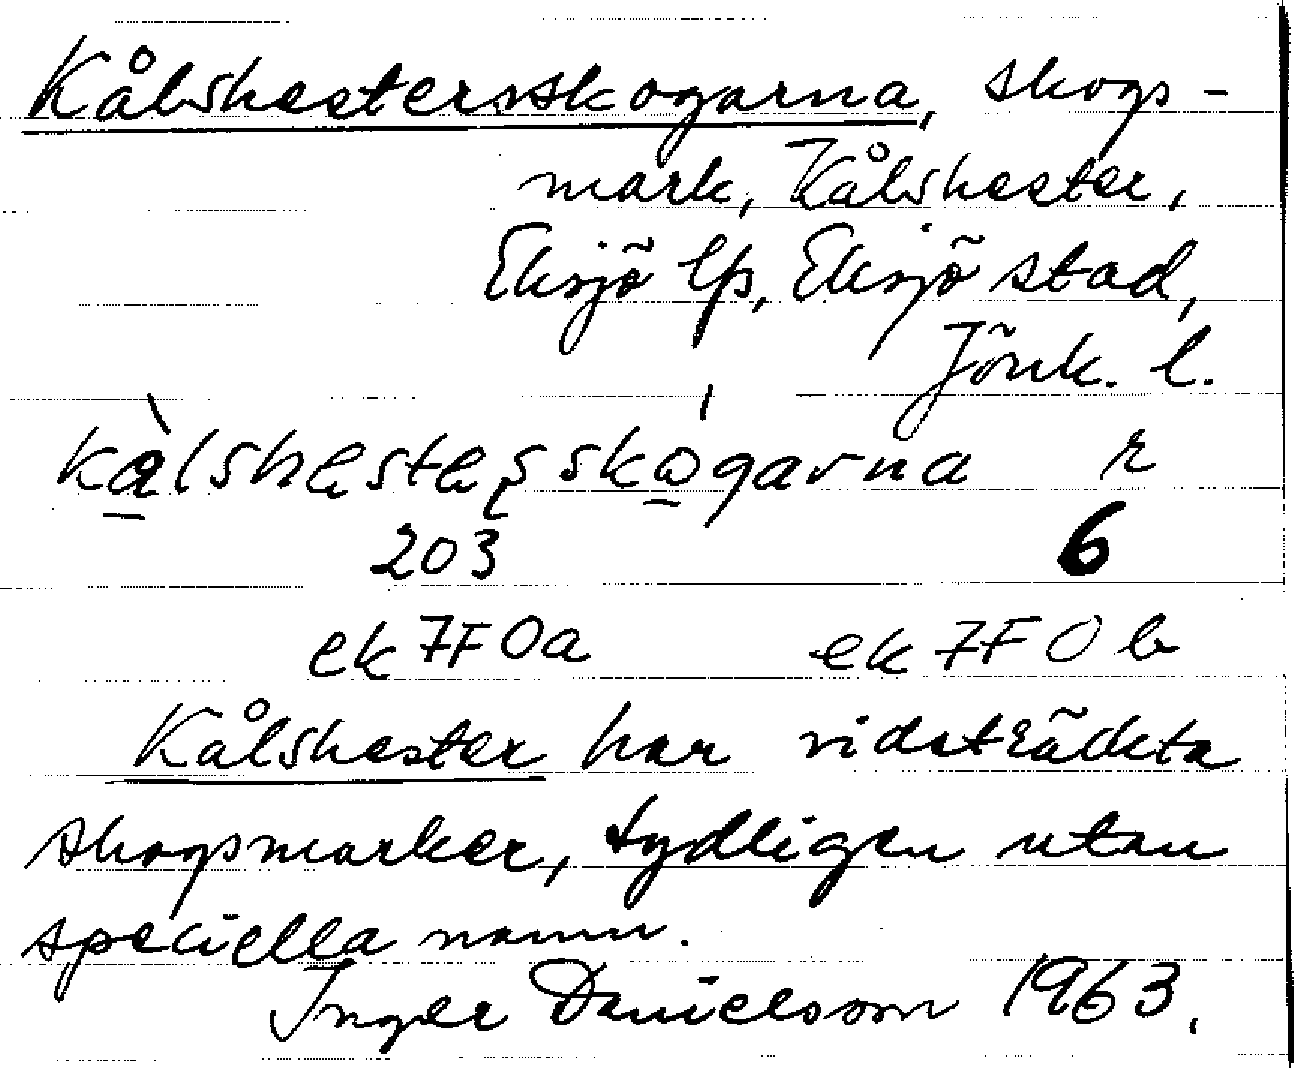 Kålshestersskogarna, skogs-
mark, Kålshester,
Eksjö lfs, Eksjö stad,
Jönk. l.
kàlshestesskógarna r
203 6
ek 7F0a ek 7F0b
Kålshester har vidsträckta
skogsmarker, tydligen utan
speciella namn.
Inger Danielsson 1963.